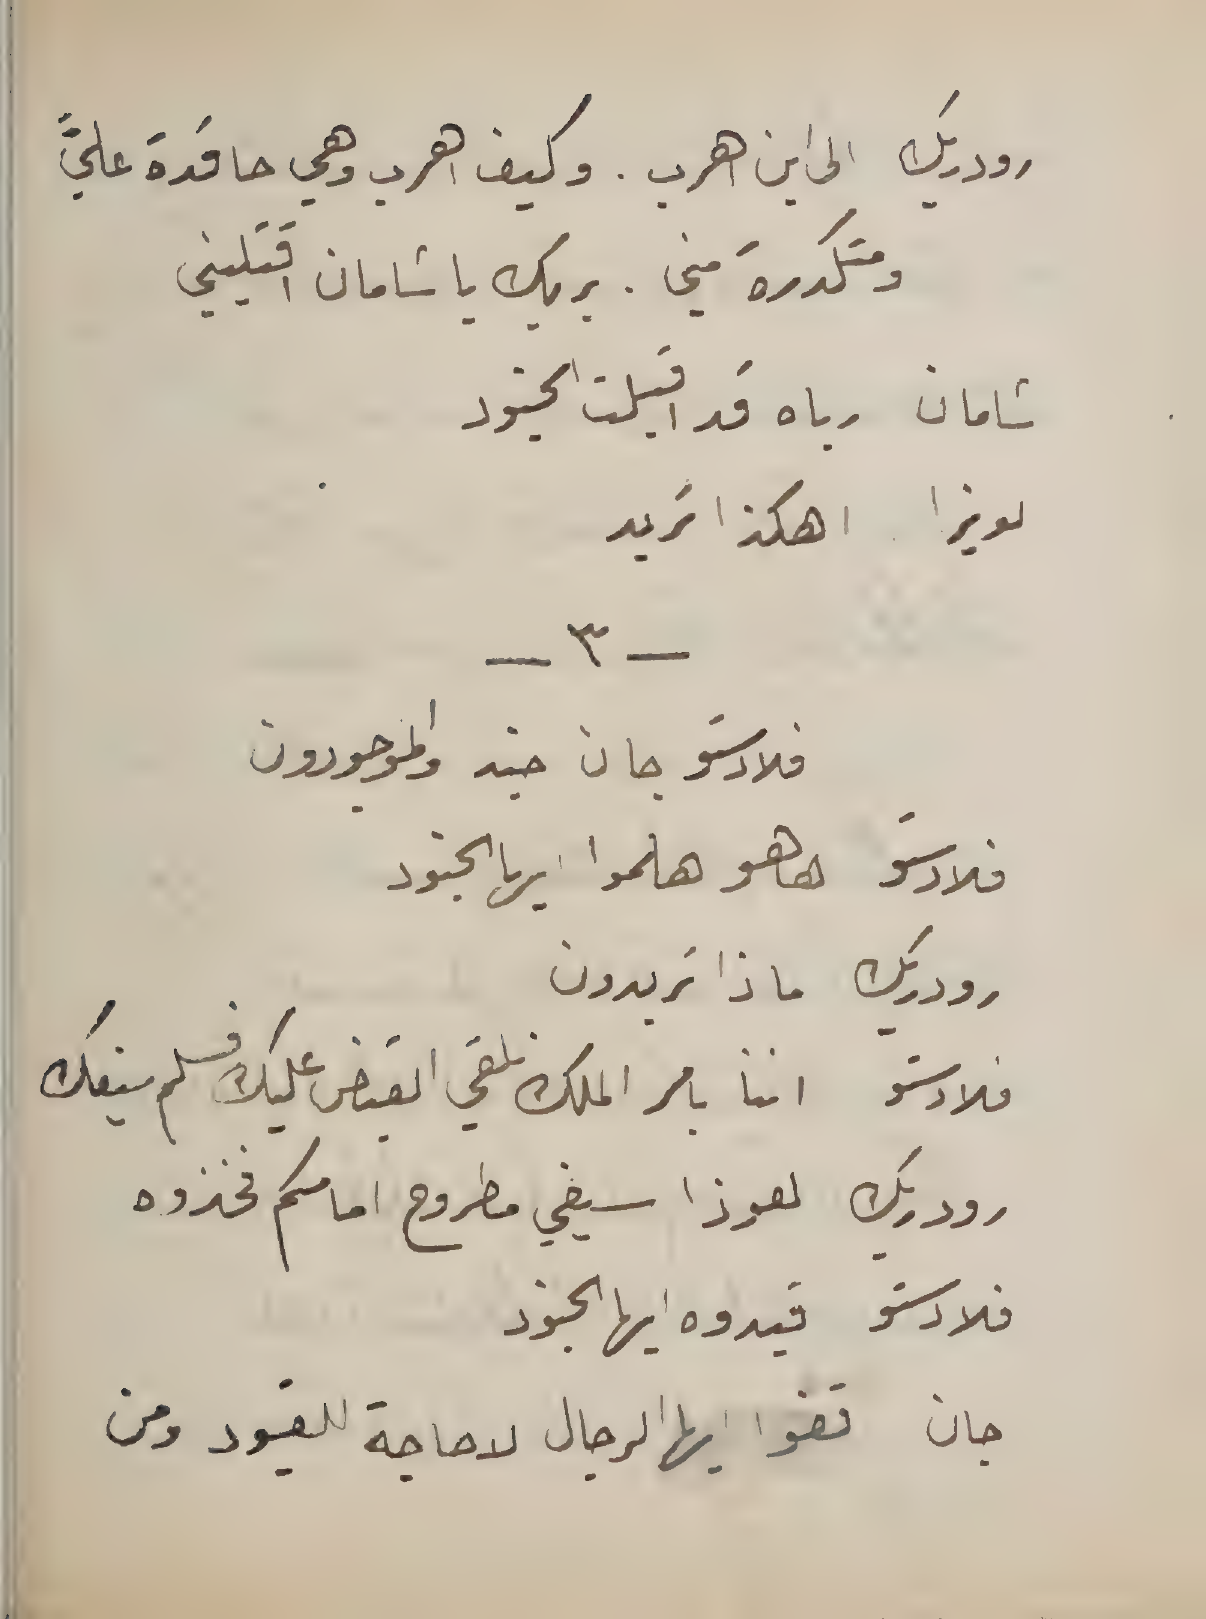 رودريك الى اين اهرب . وكيف اهرب وهي حاقدة عليَّ
ومتكدرة مني . بربك يا شامان اقتليني
شامان رباه قد اقبلت الجنود
لويزا اهكذا تريد
— ٣ —
فلادستو جان جند والموجودون
فلادستو هاهو هلموا ايها الجنود
رودريك ماذا تريدون
فلادستو اننا بامر الملك نلقي القبض عليك فسلم سيفك
رودريك لهوذا سيفي مطروح امامكم فخذوه
فلادستو قيدوه ايها الجنود
جان قفوا ايها الرجال لا حاجة للقيود ومن